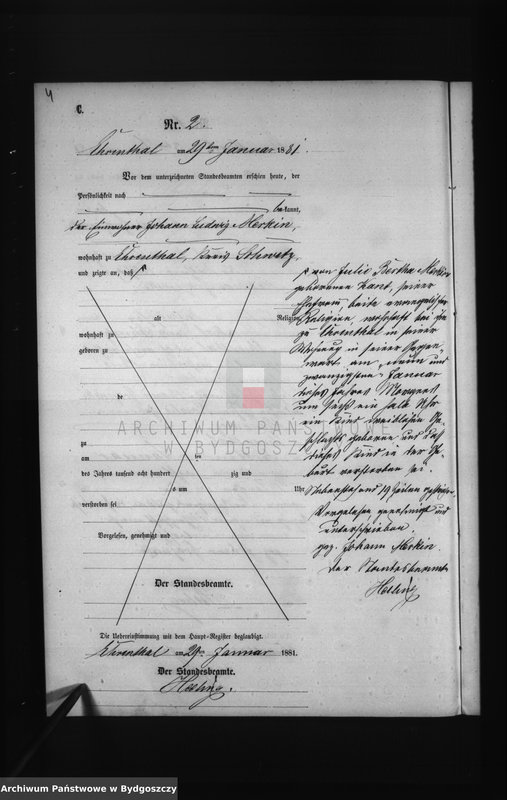 4
C.
Nr. 2.
Ehrenthal am 29ten Januar 1881.
Vor dem unterzeichneten Standesbeamten erschien heute, der
Persönlichkeit nach
bekannt,
der Einwohner Johann Ludwig Merkin,
wohnhaft zu Ehrenthal, Kreis Schwetz,
und zeigte an, daß
von Julie Bertha Merkin
geborenen Kant, seiner
Ehefrau beide evangelischer
als Religion,
Religion, wohnhaft bei ihm
wohnhaft zu
zu Ehrenthal in seiner
geboren zu
Wohnung in seiner Gegen
wart am neun und
zwanzigsten Januar
dieses Jahres Morgens
de
um sechs ein halb Uhr
ein Kind weiblichen Ge
schlechts geboren und daß
zu
dieses Kind in der Ge
am ten
burt verstorben sei.
des Jahres tausend acht hundert zig und
um Uhr
verstorben sei
19 Zeilen
Vorgelesen, genehmigt und
Vorgelesen, genehmigt und
unterschrieben.
gez. Johann Merkin.
Der Standesbeamte.
Der Standesbeamte
Heling
Die Uebereinstimmung mit dem Haupt-Register beglaubigt.
Ehrenthal am 29ten Januar 1881.
Der Standesbeamte.
Heling.
ARCHIWUM PAŃSTWOWE
W BYDGOSZCZY
Archiwum Państwowe w Bydgoszczy